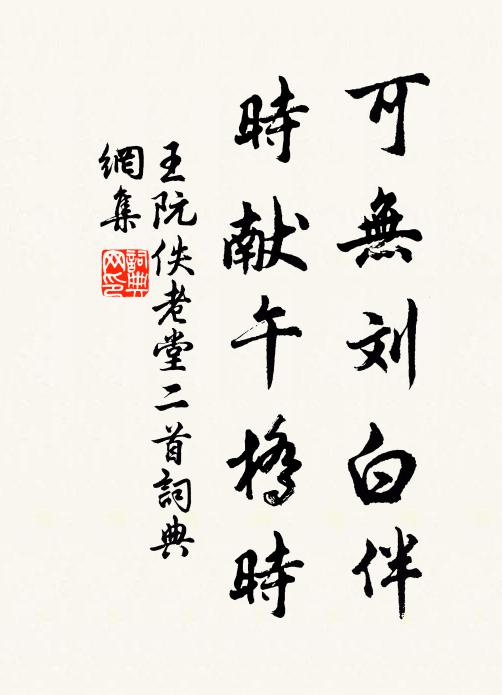 可無刘白伴
時献午橋時
王阮佚老堂二首詞典
網集
詞典
网印